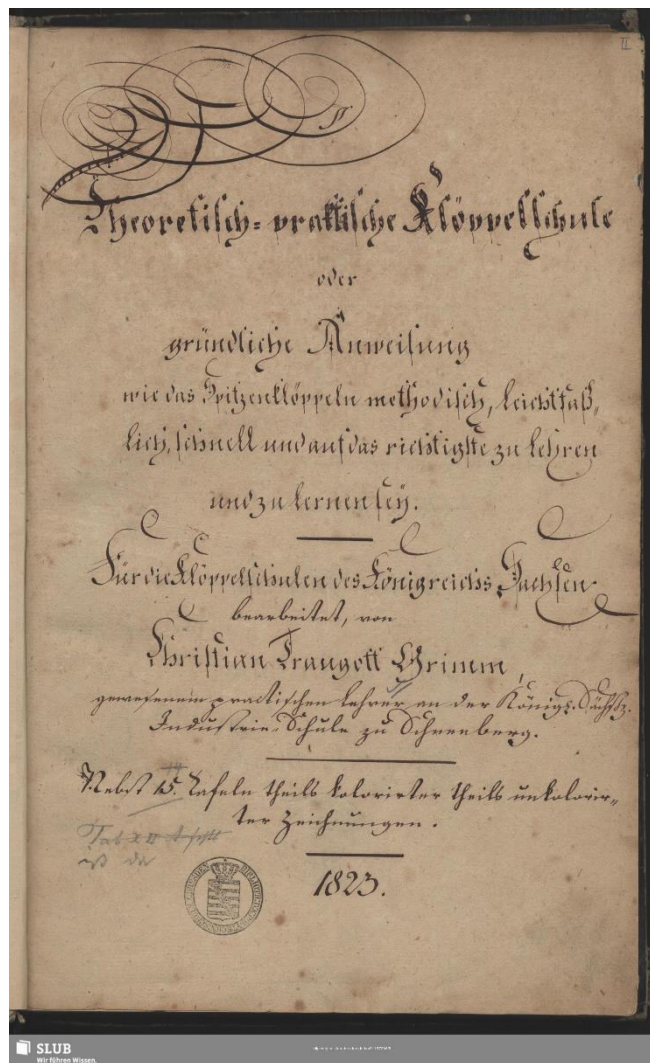 II
Theoretisch-praktische Klöppelschule
oder
gründliche Anweisung
wie das Spitzenklöppeln methodisch, leichtfaß„
lich, schnell und auf das richtigste zu lehren
und zu lernen sey.
Für die Klöppelschulen des Königreichs Sachsen
bearbeitet, von
Christian Traugott Grimm,
gewesenem practischen Lehrer an der Königl. Sächß.
Industrie-Schule zu Schneeberg.
Nebst 15. Tafeln theils kolorirter theils unkolorir„
ter Zeichnungen.
ist da
1823.
SLUB
Wir führen Wissen.